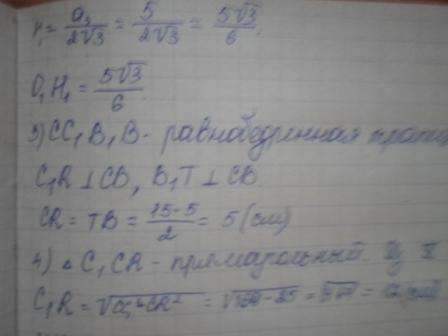 r₁ = a₃/2√3 = 5/2√3 = 5√3/6
O₁H₁ = 5√3/6
3) CC₁B₁B - равнобедренная
C₁R ⊥ CB, B₁T ⊥ CB
CR = TB = 15-5/2 = 5 (см)
4) △ C₁CR - прямоугольный. Из
C₁R =